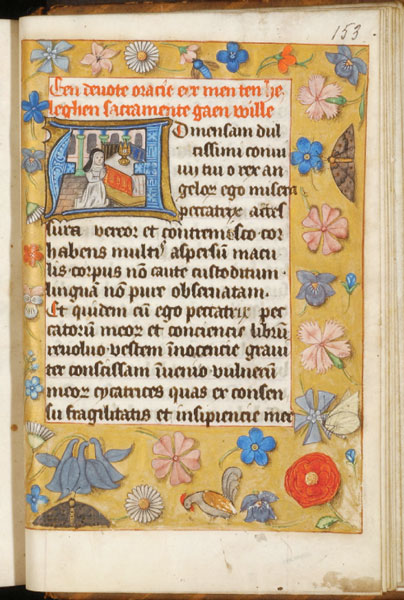 153
Een deuote oracie eer men ten he
leghen sacramente gaen wille
A D mensam dul
cissimi conui
uij tui o rex an
gelor ego misera
peccatrix accessura
vereor et contremisco cor
habens multis aspersū macu
lis corpus nō caute custoditum
linguā nō pure obseruatam.
Et quidem cū ego peccatrix pec
catorū meor et conciencie librū
reuoluo vestem īnocencie graui
ter conscissam īuenio vulnerū
meor cycatrices quas ex consen
su fragilitatis et insipiencie mee